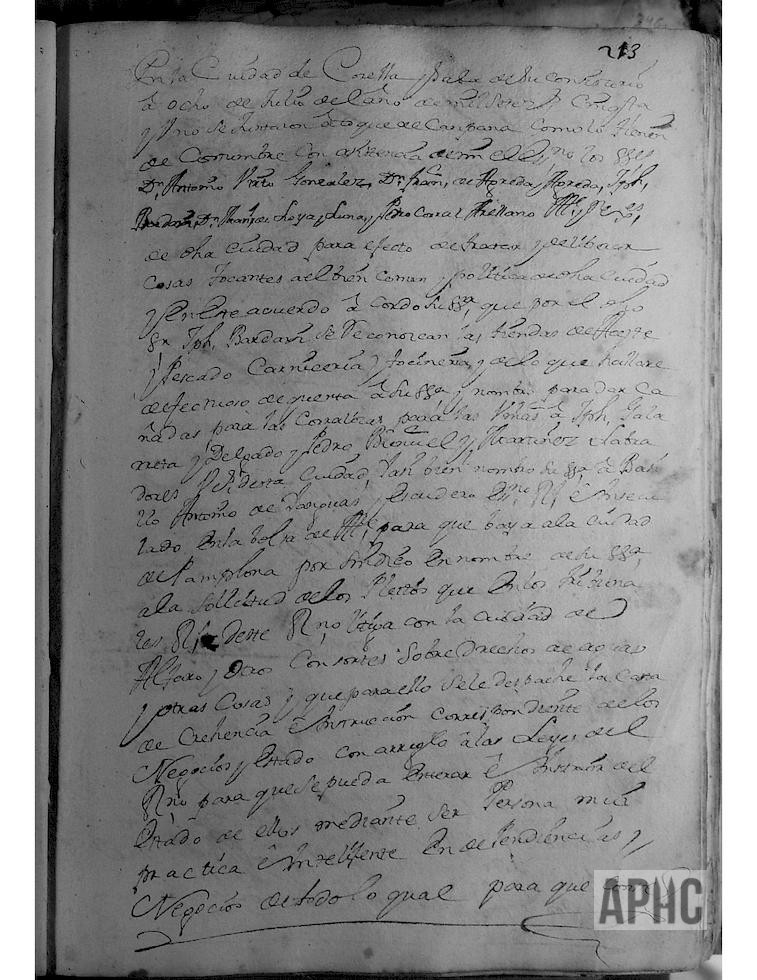 213
En la Ciudad de Corella y sala de su consistorio
a ocho de Julio de el año de mil setez.s y
y uno se Juntaron a toque de Campana como lo tienen
de Costumbre con asistencia de mi el es.no los SS.es
Dn. Antonio Virto Gonzalez, Dn. Fran.co de Aperda y Aperda, Jph,
Bardaxi, Dn. Fran.co de Loya, y Luna, y Pedro Corral Arellano
de dha ciudad para efecto de tratar y deliberar
cosas tocantes a el bien Comun y politica de dha Ciudad
y en este acuerdo acordo su SSa, que por el dho
Sr Jph, Bardaxi se Reconozcan las tiendas de Aceyte
y Pescado Carniceria y tocineria, y de lo que hallare
defectuoso de quenta a su SSa y nombro para der Ca
ñadas, para las Corralizas para las Viñas a Jph, Gala
rreta y Delgado y Pedro y Martinez Labra
dores Vz.s de esta Ciudad, tan bien nombro su SSa a
Antonio de y Escudero Es.no Rl, e Insecu
lado en la bolsa de para que baya a la Ciudad
de Pamplona por Sindico en nombre de su SSa,
a la Solicitud de los Pleitos que en los tribuna
les Rs de este Rno litiga con la Ciudad de
Alfaro y otros Consortes sobre Drechos de aguas
y otras Cosas y que para ello se le despache la Carta
de Crehencia e Instrucion correspondiente de los
Negocios y estado con arreglo a las Leyes de el
Rno para que se pueda enterar e Instruir del
estado de ellos mediante ser Persona mui
practica e Intelijente en dependiencias y
Negocios de todo lo qual para que
APHC